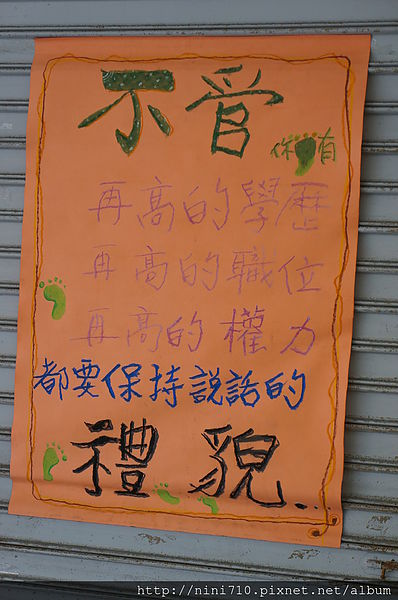 不管
你有
再高的學歷
再高的職位
再高的權力
都要保持說話的
禮貌...
http://nini710.pixnet.net/album